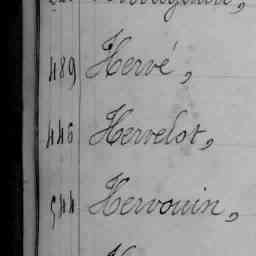 489 Hervé,
446 Hervelot,
544 Hervouin,